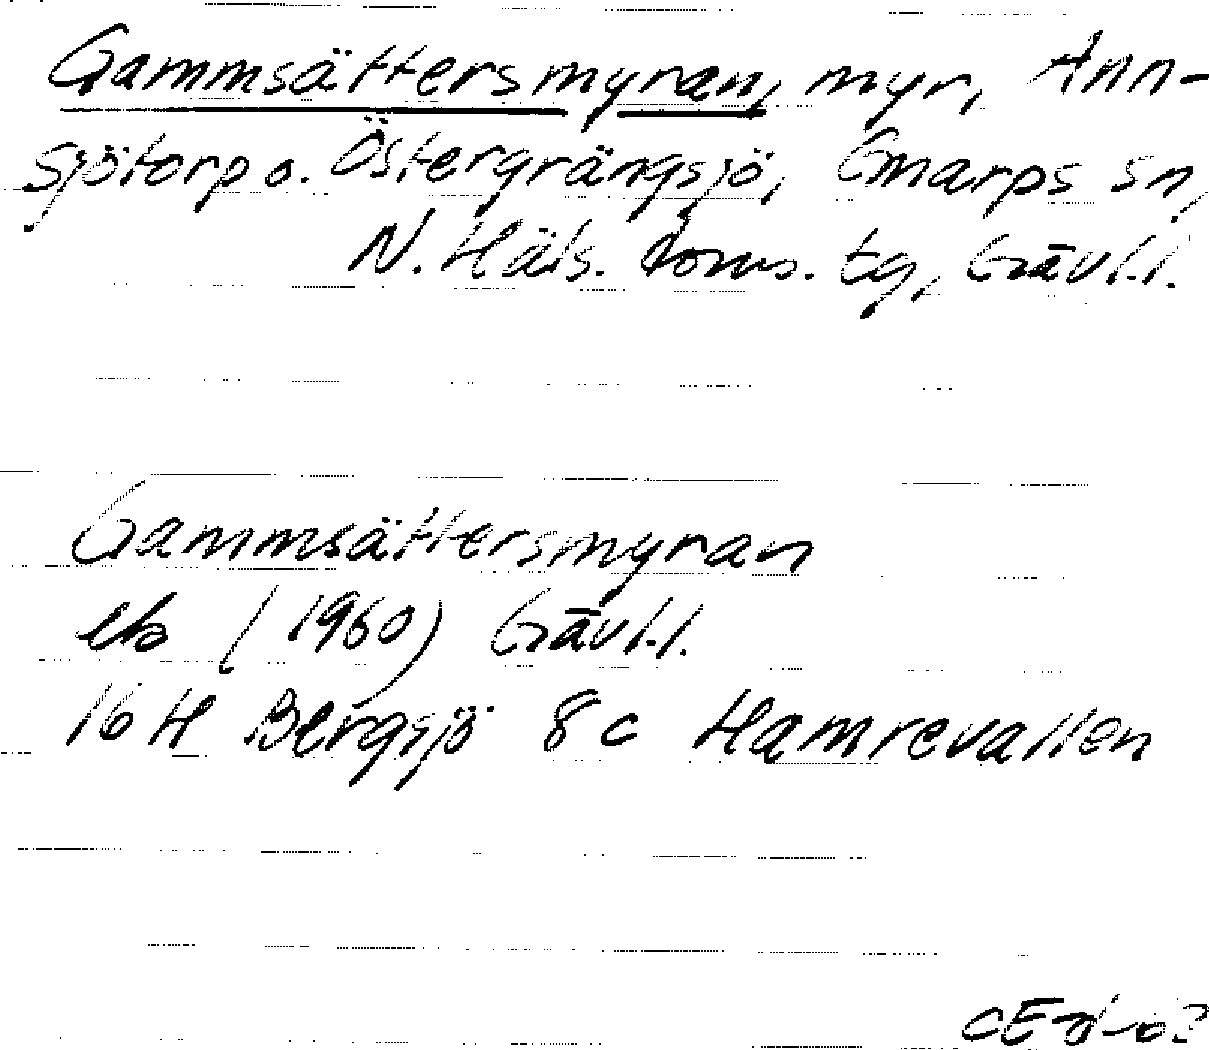 Gammsättersmyran, myr, Ann-
sjötorp o. Östergrängsjö, Gnarps sn,
N. Häls. doms. tg, Gävl.l.
Gammsättersmyran
ek (1960) Gävl.l.
16 H Bergsjö 8c Hamrevallen